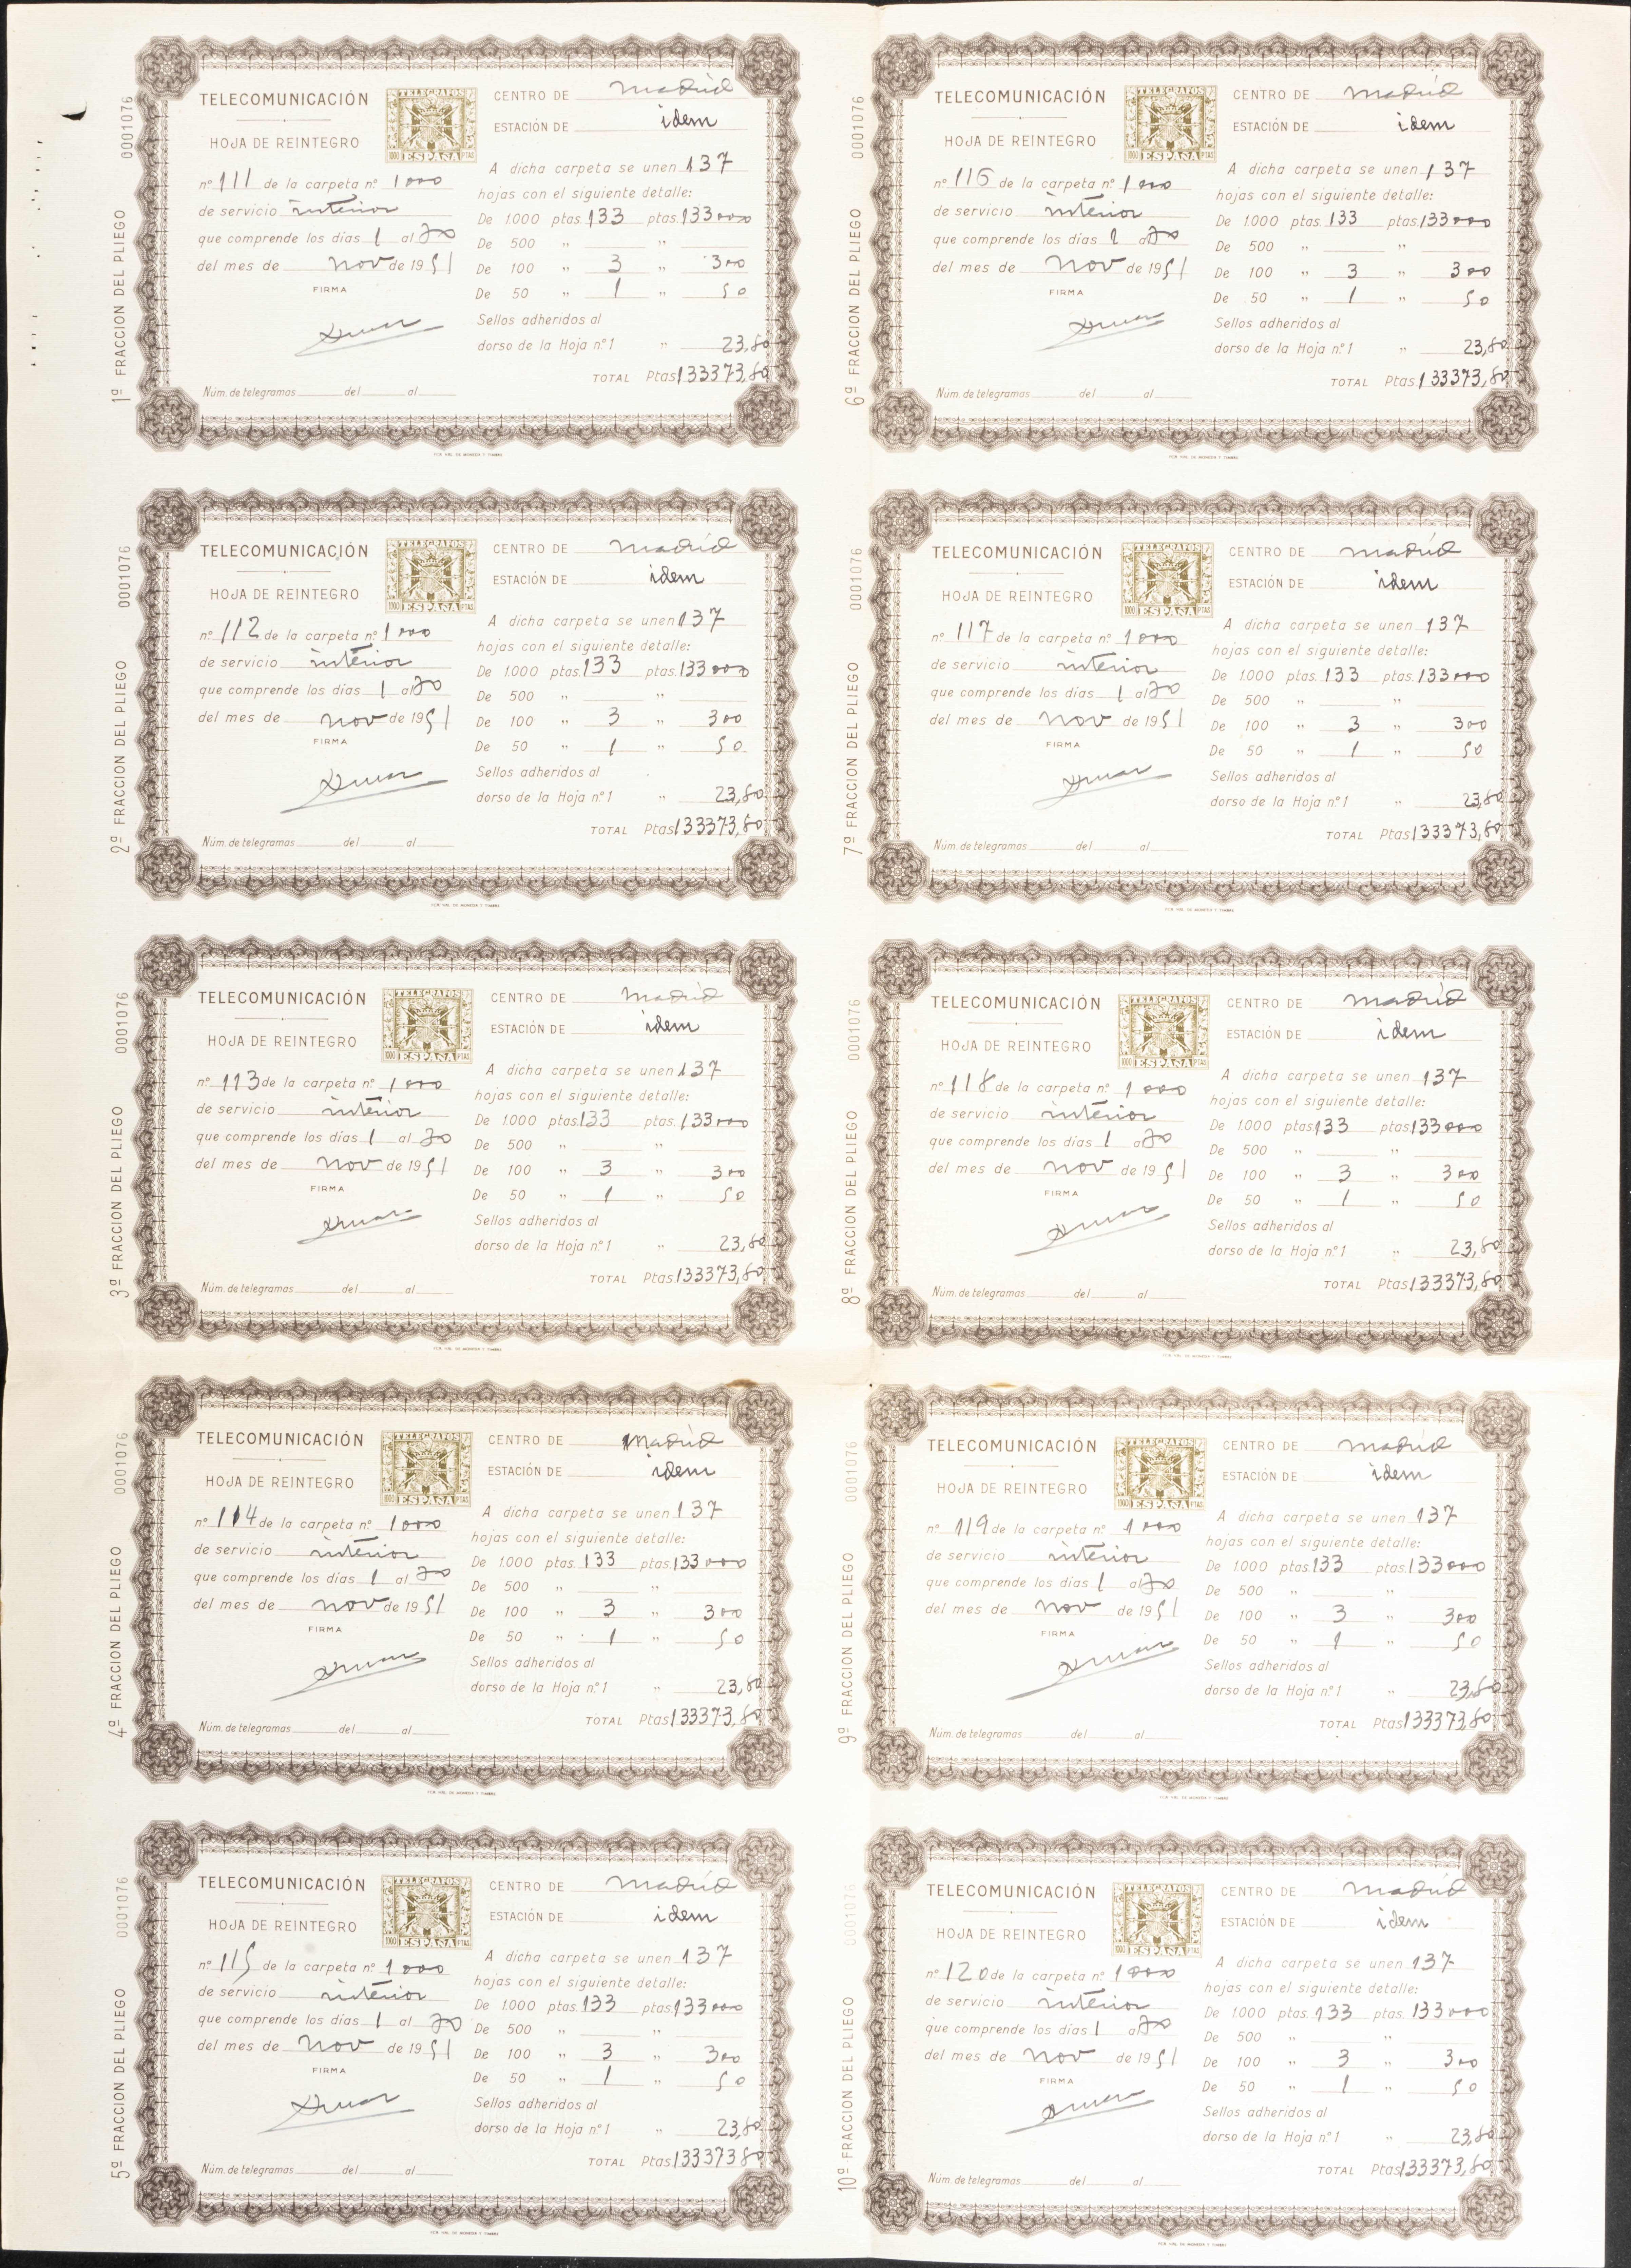 1ª FRACCION DEL PLIEGO 0001076
TELECOMUNICACIÓN
HOJA DE REINTEGRO
nº 111 de la carpeta nº 1000
de servicio interior
que comprende los días 1 al 30
del mes de nov de 1951
FIRMA
Núm. de telegramas del al
TELEGRAFOS
1000 ESPAÑA PTAS
CENTRO DE Madrid
ESTACIÓN DE idem
A dicha carpeta se unen 137
hojas con el siguiente detalle:
De 1.000 ptas. 133 ptas. 133000
De 500 " "
De 100 " 3 " 300
De 50 " 1 " 50
Sellos adheridos al
dorso de la Hoja nº 1 " 23,80
TOTAL Ptas 133373,80
FCA. NAL. DE MONEDA Y TIMBRE
6ª FRACCION DEL PLIEGO 0001076
TELECOMUNICACIÓN
HOJA DE REINTEGRO
nº 116 de la carpeta nº 1000
de servicio interior
que comprende los días 1 al 30
del mes de nov de 1951
FIRMA
Núm. de telegramas del al
TELEGRAFOS
1000 ESPAÑA PTAS
CENTRO DE Madrid
ESTACIÓN DE idem
A dicha carpeta se unen 137
hojas con el siguiente detalle:
De 1.000 ptas. 133 ptas. 133000
De 500 " "
De 100 " 3 " 300
De 50 " 1 " 50
Sellos adheridos al
dorso de la Hoja nº 1 " 23,80
TOTAL Ptas 133373,80
FCA. NAL. DE MONEDA Y TIMBRE
2ª FRACCION DEL PLIEGO 0001076
TELECOMUNICACIÓN
HOJA DE REINTEGRO
nº 112 de la carpeta nº 1000
de servicio interior
que comprende los días 1 al 30
del mes de nov de 1951
FIRMA
Núm. de telegramas del al
TELEGRAFOS
1000 ESPAÑA PTAS
CENTRO DE Madrid
ESTACIÓN DE idem
A dicha carpeta se unen 137
hojas con el siguiente detalle:
De 1.000 ptas. 133 ptas. 133000
De 500 " "
De 100 " 3 " 300
De 50 " 1 " 50
Sellos adheridos al
dorso de la Hoja nº 1 " 23,80
TOTAL Ptas 133373,80
FCA. NAL. DE MONEDA Y TIMBRE
7ª FRACCION DEL PLIEGO 0001076
TELECOMUNICACIÓN
HOJA DE REINTEGRO
nº 117 de la carpeta nº 1000
de servicio interior
que comprende los días 1 al 30
del mes de nov de 1951
FIRMA
Núm. de telegramas del al
TELEGRAFOS
1000 ESPAÑA PTAS
CENTRO DE Madrid
ESTACIÓN DE idem
A dicha carpeta se unen 137
hojas con el siguiente detalle:
De 1.000 ptas. 133 ptas. 133000
De 500 " "
De 100 " 3 " 300
De 50 " 1 " 50
Sellos adheridos al
dorso de la Hoja nº 1 " 23,80
TOTAL Ptas 133373,80
FCA. NAL. DE MONEDA Y TIMBRE
3ª FRACCION DEL PLIEGO 0001076
TELECOMUNICACIÓN
HOJA DE REINTEGRO
nº 113 de la carpeta nº 1000
de servicio interior
que comprende los días 1 al 30
del mes de nov de 1951
FIRMA
Núm. de telegramas del al
TELEGRAFOS
1000 ESPAÑA PTAS
CENTRO DE Madrid
ESTACIÓN DE idem
A dicha carpeta se unen 137
hojas con el siguiente detalle:
De 1.000 ptas. 133 ptas. 133000
De 500 " "
De 100 " 3 " 300
De 50 " 1 " 50
Sellos adheridos al
dorso de la Hoja nº 1 " 23,80
TOTAL Ptas 133373,80
FCA. NAL. DE MONEDA Y TIMBRE
8ª FRACCION DEL PLIEGO 0001076
TELECOMUNICACIÓN
HOJA DE REINTEGRO
nº 118 de la carpeta nº 1000
de servicio interior
que comprende los días 1 al 30
del mes de nov de 1951
FIRMA
Núm. de telegramas del al
TELEGRAFOS
1000 ESPAÑA PTAS
CENTRO DE Madrid
ESTACIÓN DE idem
A dicha carpeta se unen 137
hojas con el siguiente detalle:
De 1.000 ptas. 133 ptas. 133000
De 500 " "
De 100 " 3 " 300
De 50 " 1 " 50
Sellos adheridos al
dorso de la Hoja nº 1 " 23,80
TOTAL Ptas 133373,80
FCA. NAL. DE MONEDA Y TIMBRE
4ª FRACCION DEL PLIEGO 0001076
TELECOMUNICACIÓN
HOJA DE REINTEGRO
nº 114 de la carpeta nº 1000
de servicio interior
que comprende los días 1 al 30
del mes de nov de 1951
FIRMA
Núm. de telegramas del al
TELEGRAFOS
1000 ESPAÑA PTAS
CENTRO DE Madrid
ESTACIÓN DE idem
A dicha carpeta se unen 137
hojas con el siguiente detalle:
De 1.000 ptas. 133 ptas. 133000
De 500 " "
De 100 " 3 " 300
De 50 " 1 " 50
Sellos adheridos al
dorso de la Hoja nº 1 " 23,80
TOTAL Ptas 133373,80
FCA. NAL. DE MONEDA Y TIMBRE
9ª FRACCION DEL PLIEGO 0001076
TELECOMUNICACIÓN
HOJA DE REINTEGRO
nº 119 de la carpeta nº 1000
de servicio interior
que comprende los días 1 al 30
del mes de nov de 1951
FIRMA
Núm. de telegramas del al
TELEGRAFOS
1000 ESPAÑA PTAS
CENTRO DE Madrid
ESTACIÓN DE idem
A dicha carpeta se unen 137
hojas con el siguiente detalle:
De 1.000 ptas. 133 ptas. 133000
De 500 " "
De 100 " 3 " 300
De 50 " 1 " 50
Sellos adheridos al
dorso de la Hoja nº 1 " 23,80
TOTAL Ptas 133373,80
FCA. NAL. DE MONEDA Y TIMBRE
5ª FRACCION DEL PLIEGO 0001076
TELECOMUNICACIÓN
HOJA DE REINTEGRO
nº 115 de la carpeta nº 1000
de servicio interior
que comprende los días 1 al 30
del mes de nov de 1951
FIRMA
Núm. de telegramas del al
TELEGRAFOS
1000 ESPAÑA PTAS
CENTRO DE Madrid
ESTACIÓN DE idem
A dicha carpeta se unen 137
hojas con el siguiente detalle:
De 1.000 ptas. 133 ptas. 133000
De 500 " "
De 100 " 3 " 300
De 50 " 1 " 50
Sellos adheridos al
dorso de la Hoja nº 1 " 23,80
TOTAL Ptas 133373,80
FCA. NAL. DE MONEDA Y TIMBRE
10ª FRACCION DEL PLIEGO 0001076
TELECOMUNICACIÓN
HOJA DE REINTEGRO
nº 120 de la carpeta nº 1000
de servicio interior
que comprende los días 1 al 30
del mes de nov de 1951
FIRMA
Núm. de telegramas del al
TELEGRAFOS
1000 ESPAÑA PTAS
CENTRO DE Madrid
ESTACIÓN DE idem
A dicha carpeta se unen 137
hojas con el siguiente detalle:
De 1.000 ptas. 133 ptas. 133000
De 500 " "
De 100 " 3 " 300
De 50 " 1 " 50
Sellos adheridos al
dorso de la Hoja nº 1 " 23,80
TOTAL Ptas 133373,80
FCA. NAL. DE MONEDA Y TIMBRE